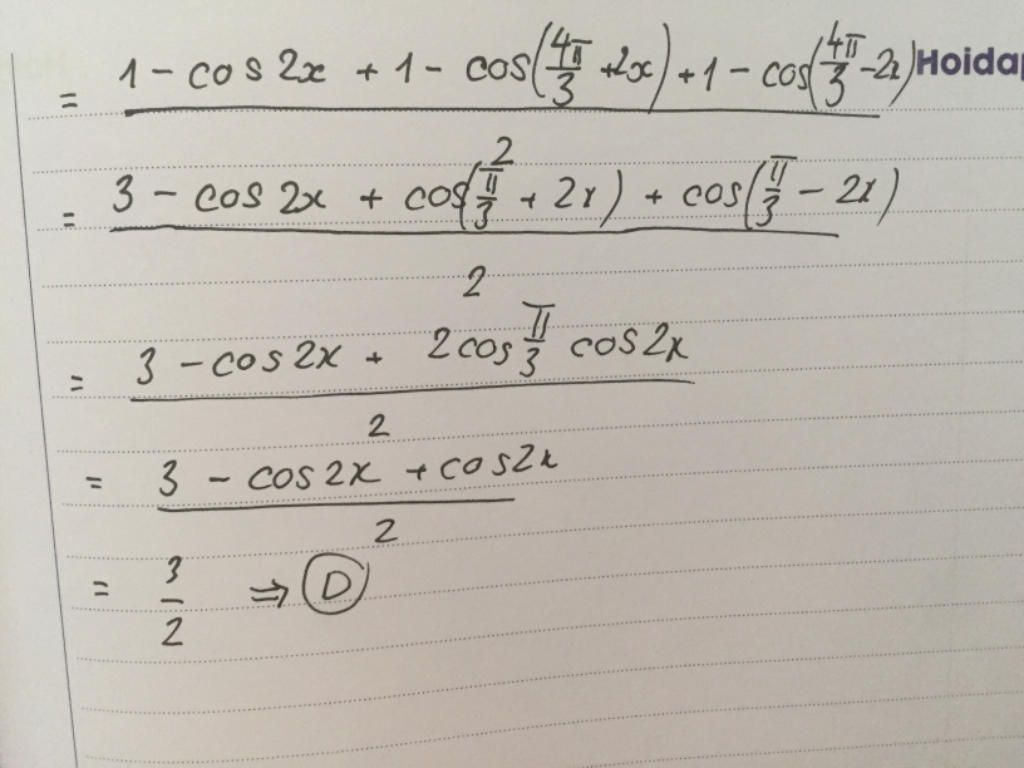 = (1 - cos 2x + 1 - cos(4π/3 + 2x) + 1 - cos(4π/3 - 2x)) / 2 Hoidap
= (3 - cos 2x + cos(π/3 + 2x) + cos(π/3 - 2x)) / 2
= (3 - cos 2x + 2 cos π/3 cos 2x) / 2
= (3 - cos 2x + cos 2x) / 2
= 3/2 ⇒ D